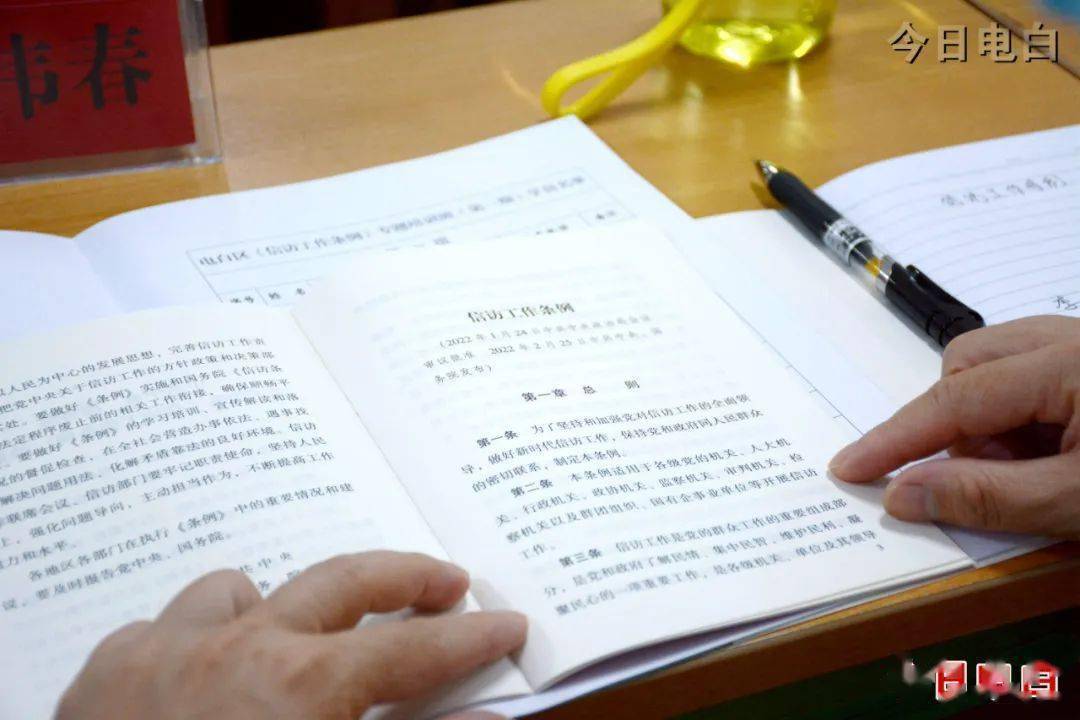 今日电白
韦春
电白区《信访工作条例》专题培训班（第一期）学员名单
姓名
以人民为中心的发展思想，完善信访工作责
把党中央关于信访工作的方针政策和决策部
处。要做好《条例》实施和国务院《信访条
法定程序废止前的相关工作衔接，确保顺畅平
要做好《条例》的学习培训、宣传解读和落
况的督促检查，在全社会营造办事依法、遇事找
解决问题用法、化解矛盾靠法的良好环境。信访
联席会议、信访部门要牢记职责使命，坚持人民
上，强化问题导向，主动担当作为，不断提高工作
力和水平。
各地区各部门在执行《条例》中的重要情况和建
议，要及时报告党中央、国务院。
中共中央
国务院
信访工作条例
（2022年1月24日中共中央政治局会议
审议批准 2022年2月25日中共中央、国
务院发布）
第一章 总 则
第一条 为了坚持和加强党对信访工作的全面领
导，做好新时代信访工作，保持党和政府同人民群众
的密切联系，制定本条例。
第二条 本条例适用于各级党的机关、人大机
关、行政机关、政协机关、监察机关、审判机关、检
察机关以及群团组织、国有企事业单位等开展信访
工作。
第三条 信访工作是党的群众工作的重要组成部
分，是党和政府了解民情、集中民智、维护民利、凝
聚民心的一项重要工作，是各级机关、单位及其领导
3
信访工作条例
今日电白